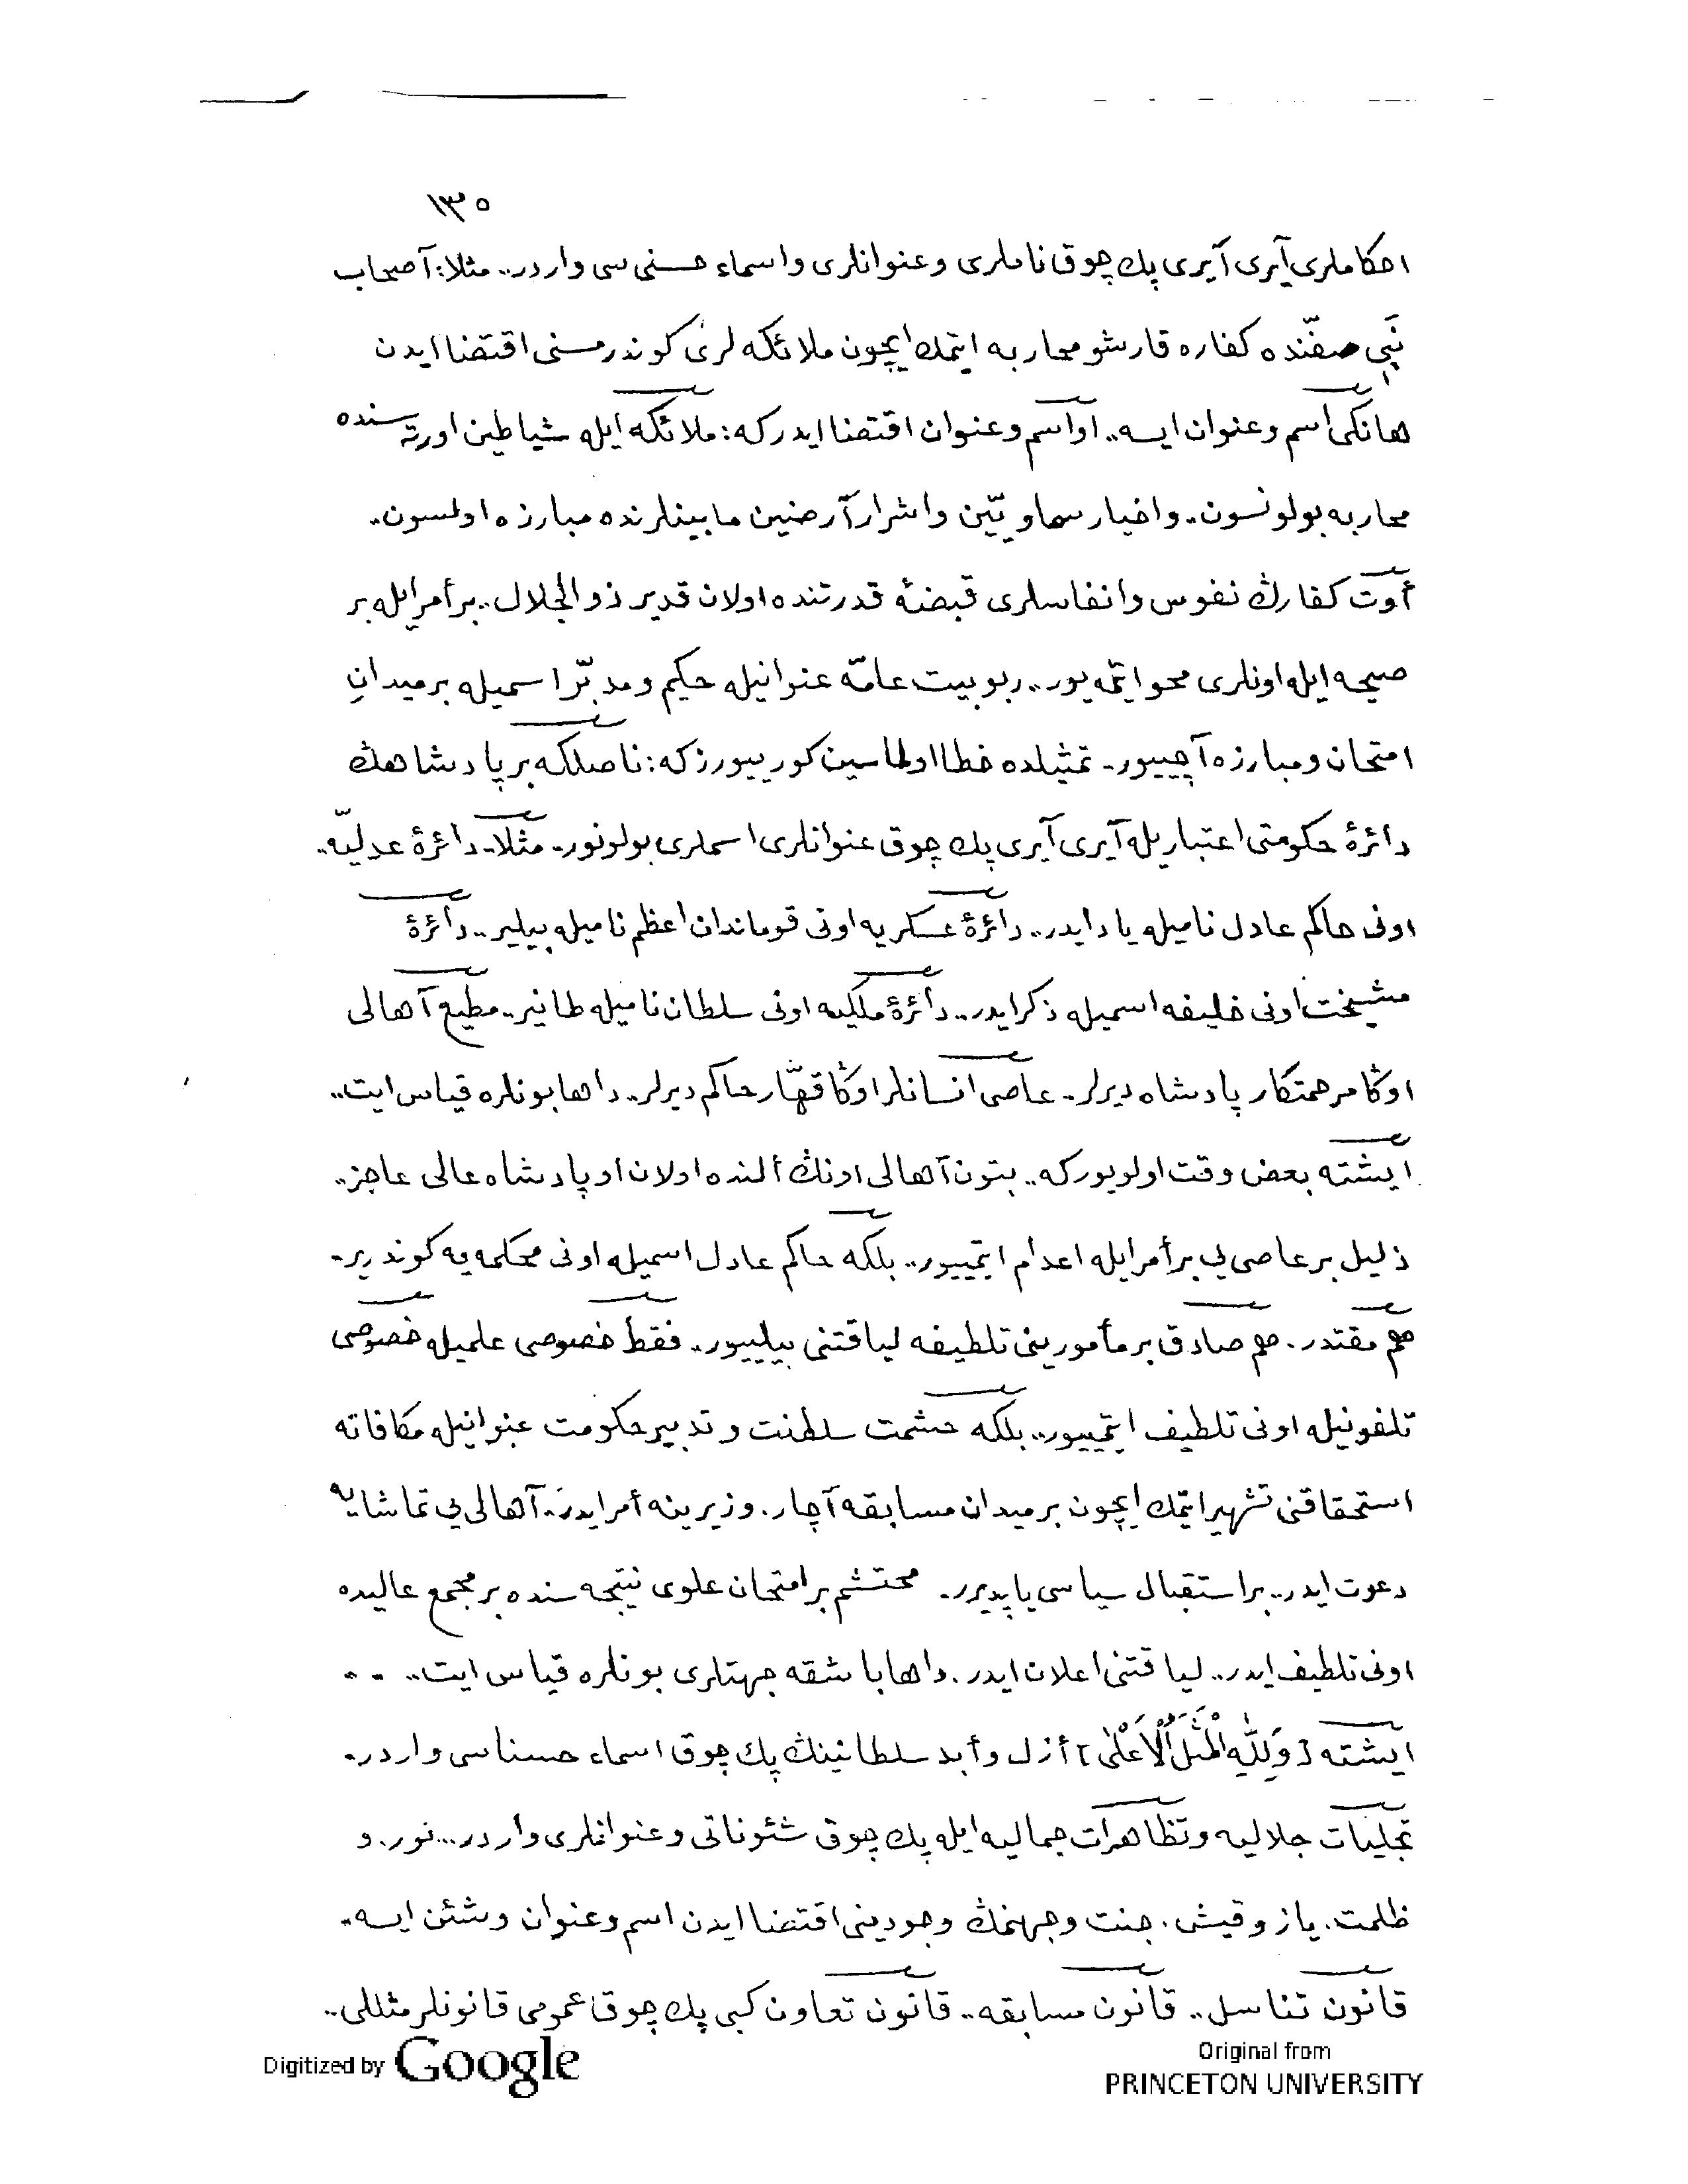 ١٣٥
احكاملری آیری آیری پك چوق ناملری و عنوانلری و اسماء حسنی سی واردر.. مثلا: آصحاب
نَبِی صفّنده كفاره قارشو محاربه ایتمك ایچون ملائكه لری كوندرمسنی اقتضا ایدن
هانكی اسم و عنوان ایسه.. او اسم و عنوان اقتضا ایدركه: ملائكه ایله شیاطین اورته سنده
محاربه بولونسون.. و اخیار سماویّین و اشرار آرضین مابینلرنده مبارزه اولسون..
أوت كفارڭ نفوس و انفاسلری قبضۀ قدرتنده اولان قدیر ذوالجلال.. بر أمر ایله بر
صیحه ایله اونلری محو ایتمه یور.. ربوبیت عامّه عنوانیله حكیم و مدبّر اسمیله بر میدانِ
امتحان و مبارزه آچییور.. تمثیلده خطا اولماسین كورییورزكه: ناصلكه بر پادشاهڭ
دائرۀ حكومتی اعتباریله آیری آیری پك چوق عنوانلری اسملری بولونور.. مثلا.. دائرۀ عدلیّه..
اونی حاكم عادل نامیله یاد ایدر.. دائرۀ عسكریه اونی قوماندان اعظم نامیله بیلیر.. دائرۀ
مشیخت اونی خلیفه اسمیله ذكر ایدر.. دائرۀ ملكیه اونی سلطان نامیله طانیر.. مطیع آهالی
اوڭا مرحمتكار پادشاه دیرلر.. عاصی انسانلر اوڭا قهّار حاكم دیرلر.. داها بونلره قیاس ایت..
ایشته بعض وقت اولویوركه.. بتون آهالی اونڭ ألنده اولان او پادشاه عالی عاجز..
ذلیل بر عاصی یی بر أمر ایله اعدام ایتمییور.. بلكه حاكم عادل اسمیله اونی محكمه یه كوندریر..
هم مقتدر. هم صادق بر مأمورینی تلطیفه لیاقتنی بیلییور.. فقط خصوصی علمیله خصوصی
تلفونیله اونی تلطیف ایتمییور.. بلكه حشمت سلطنت و تدبیر حكومت عنوانیله مكافاته
استحقاقنی تشهیر ایتمك ایچون بر میدان مسابقه آچار. وزیرینه أمر ایدر.. آهالی یی تماشایه
دعوت ایدر.. بر استقبال سیاسی یاپدیرر.. محتشم بر امتحان علوی نتیجه سنده بر مجمع عالیده
اونی تلطیف ایدر.. لیاقتنی اعلان ایدر. داها باشقه جهتلری بونلره قیاس ایت.. ..
ایشته [وَلِلّٰهِ الْمَثَلُ الْاَعْلٰی] أزل و أبد سلطانینڭ پك چوق اسماء حسناسی واردر..
تجلیات جلالیه و تظاهرات جمالیه ایله پك چوق شئوناتی و عنوانلری واردر... نور. و
ظلمت. یاز و قیش. جنت و جهنمڭ وجودینی اقتضا ایدن اسم و عنوان و شئن ایسه..
قانون تناسل.. قانون مسابقه.. قانون تعاون كبی پك چوق عمومی قانونلر مثللی..
Digitized by Google
Original from
PRINCETON UNIVERSITY